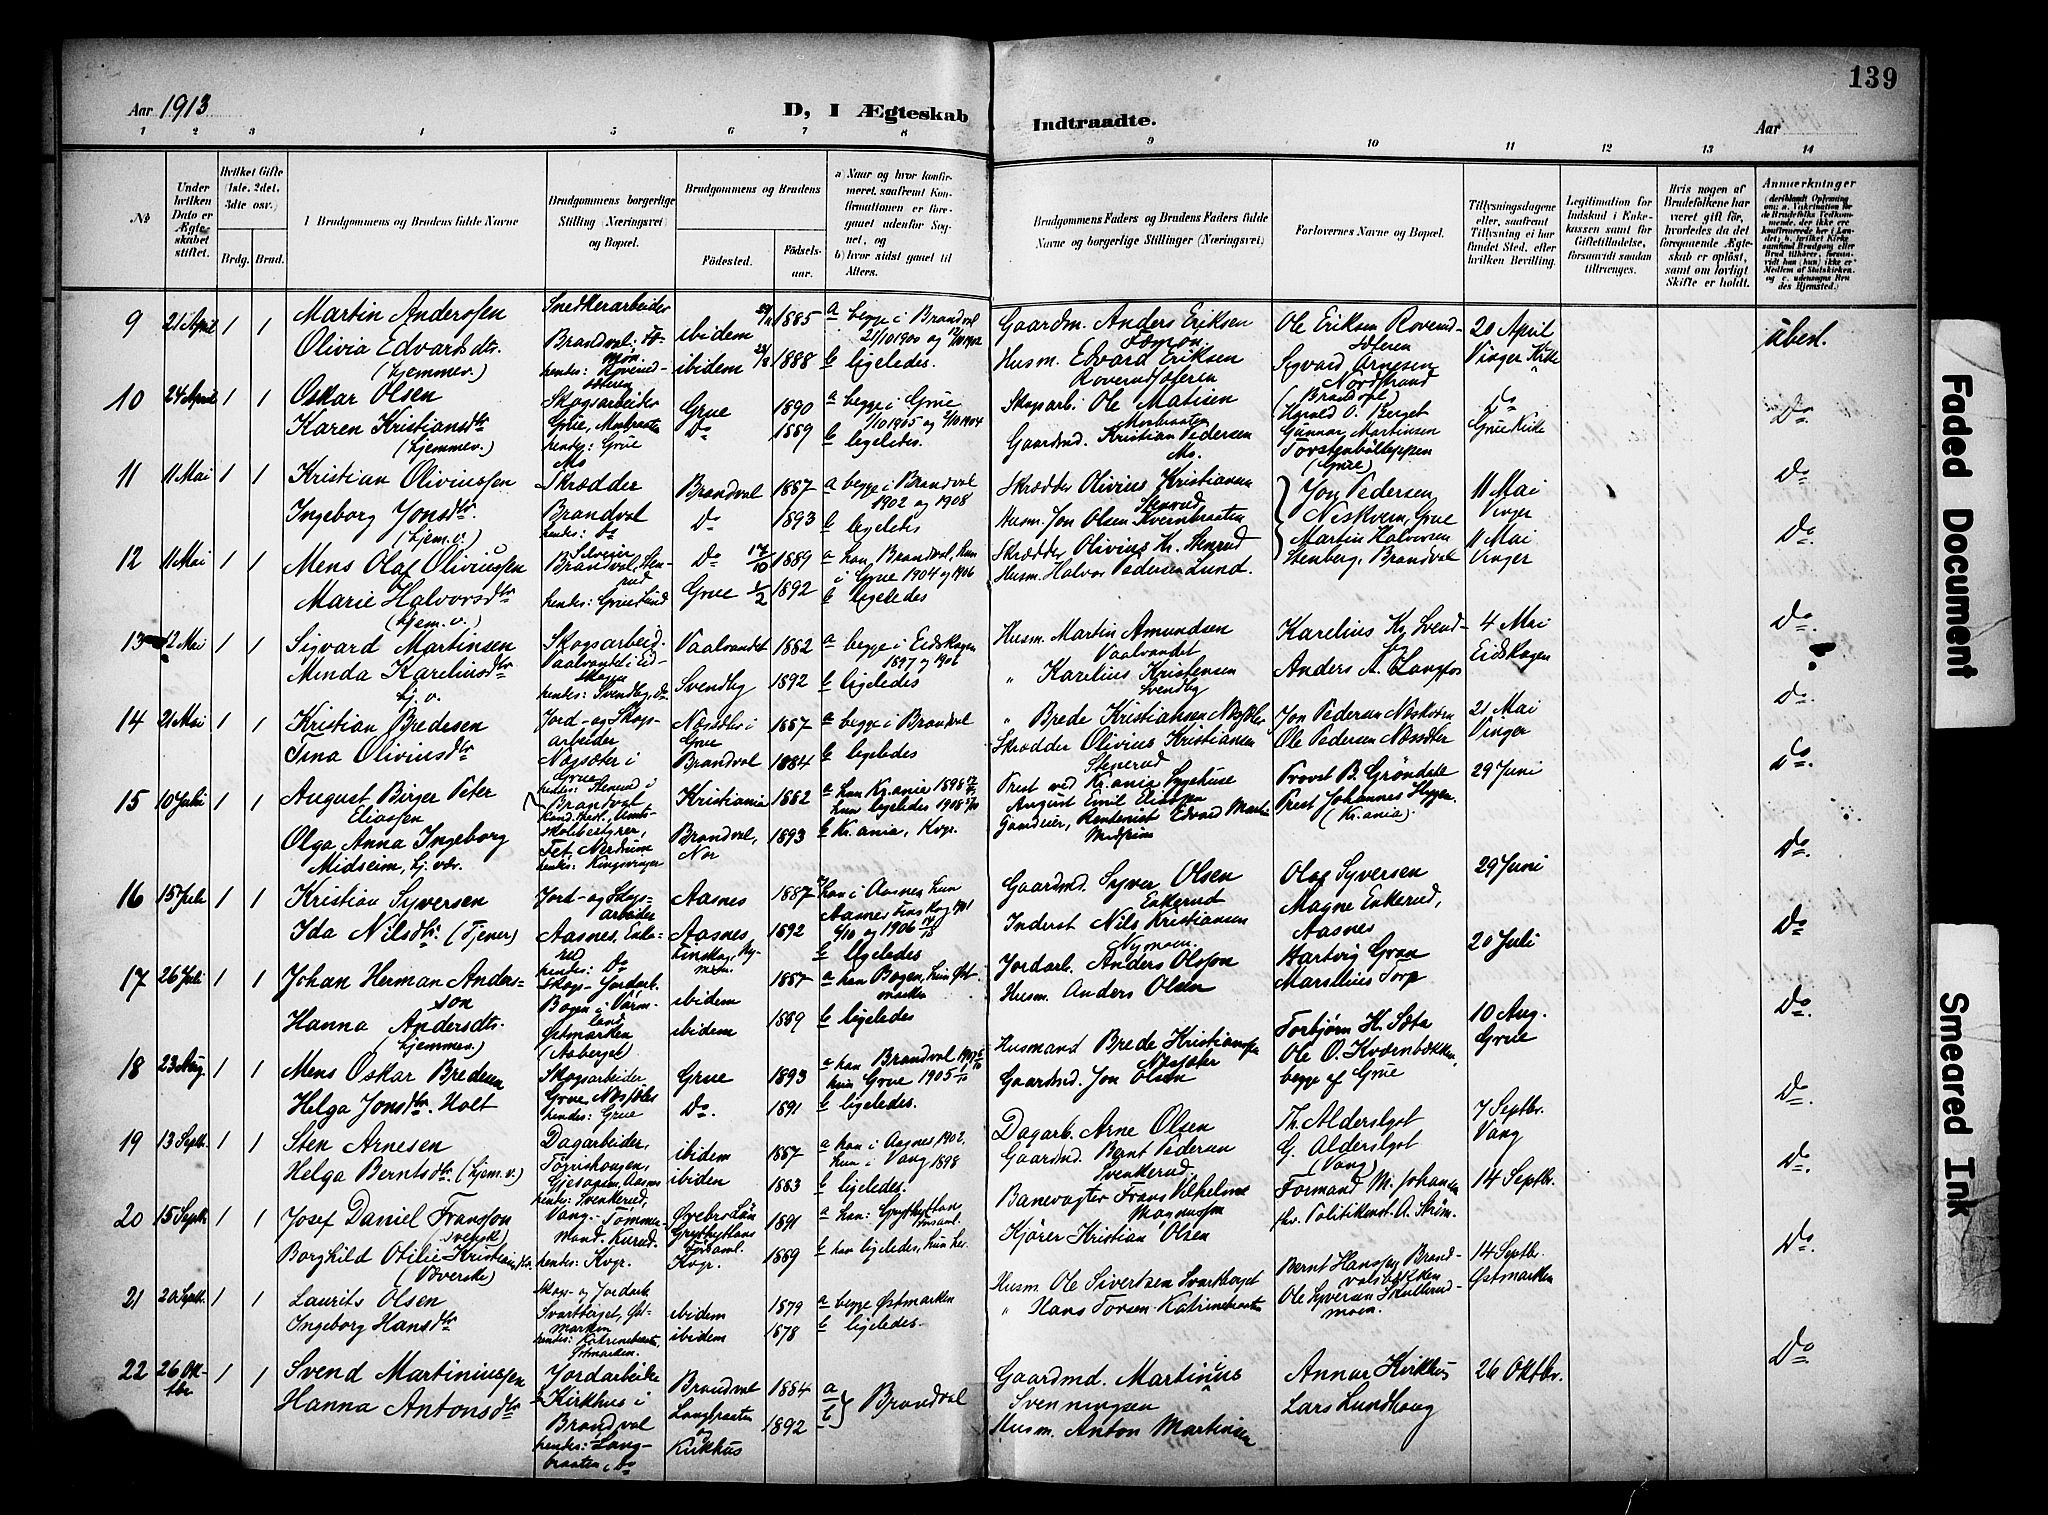 139
Aar 1913
D, I Ægteskab Indtraadte.
Aar
1 2 3 4 5 6 7 8 9 10 11 12 13 14
No
Under hvilken Dato er Ægteskabet stiftet.
Hvilket Gifte (1ste, 2det, 3dte osv.)
Brdg. Brud.
Brudgommens og Brudens fulde Navne
Brudgommens borgerlige Stilling (Næringsvei) og Bopæl.
Brudgommens og Brudens
Fødested. Fødselsaar.
a) Naar og hvor konfirmeret, saafremt Konfirmationen er foregaaet udenfor Sognet, og
b) hvor sidst gaaet til Alters.
Brudgommens Faders og Brudens Faders fulde Navne og borgerlige Stillinger (Næringsvei)
Forlovernes Navne og Bopæl.
Tillysningsdagene eller, saafremt Tillysning ei har fundet Sted, efter hvilken Bevilling.
Legitimation for Indskud i Enkekassen samt for Giftetilladelse, forsaavidt saadan tiltrænges.
Hvis nogen af Brudefolkene har været gift før, hvorledes da det foregaaende Ægteskab er opløst, samt om lovligt Skifte er holdt.
Anmærkninger
9 21 April 1 1 Martin Anderssen Snedkerarbeider ibidem 1885 a begge i Brandval Gaardm. Anders Eriksen Ole Eriksen Roverud- 20 April übesl.
Olivia Edvardsdtr. Brandval ibidem 1888 b ligeledes. Husm. Edvard Eriksen Sæteren Vinger Kirke
(hjemmev.) Roverudsæteren Sigvard Arnesen Nordstrand (Brandval)
10 24 April 1 1 Oskar Olsen Skogsarbeider Grue 1890 a begge i Grue Skogsarb. Ole Matisen Harald O. Berget Do Do
Karen Kristiansdtr Grue, Do 1889 b ligeledes. Gaardmd. Kristian Pedersen Gunnar Martinsen Grue Kirke
(hjemmev.) hendes: Grue Mo. (Grue)
11 11 Mai 1 1 Kristian Oliviussen Skrædder Brandval 1887 a begge i Brandval 1902 og 1908 Skrædder Olivius Kristiansen Stenrud Jon Pedersen 11 Mai Do
Ingeborg Jonsdtr. Brandval Do 1893 b ligeledes Husm. Jon Olsen Kvernbraaten Neskvern, Grue Vinger
(hjem.v.) hendes: Do
12 11 Mai 1 1 Mens Olaf Oliviussen Brandval, Stenrud Do 17/10 1889 a han Brandval, hun i Grue 1904 og 1906 Skrædder Olivius Kr. Stenrud Martin Halvorsen 11 Mai Do.
Marie Halvorsdtr hendes: Grue Lund Grue 1/2 1892 b ligeledes Husm. Halvor Pedersen Lund. Stenberg, Brandval Vinger
(hjem.v.)
13 12 Mai 1 1 Sigvard Martinsen Skogsarbeid. Vaalvandet 1882 a begge i Eidskogen 1897 og 1906 Husm. Martin Amundsen Vaalvandet Karelius Kr. Svend- 4 Mai Do.
Minda Kareliusdtr Vaalvandet i Eidskogen Svendby 1892 b ligeledes " Karelius Kristensen Svendby by Eidskogen
hj. v. hendes: Svendby, do Anders A. Langfos
14 21 Mai 1 1 Kristian Bredesen Jord- og Skogsarbeider Næssæter i Grue 1887 a begge i Brandval " Brede Kristiansen Næssæter Jon Pedersen Næskvern 21 Mai Do.
Tina Oliviusdtr Næssæter i Grue Brandval 1884 b ligeledes Skrædder Olivius Kristiansen Stenrud Ole Pedersen Næssæter Vinger
hendes: Stenrud i Brandval
15 10 Juli 1 1 August Birger Peter Eliassen Kristiania 1882 a han Kr.ania 1898 Prest ved Kr.ania Sygehuse August Emil Eliassen Provst B. Grøndahl 29 Juni Do
Olga Anna Ingeborg Midseim, hj. vær. Fet, Nerdrum hendes: Kongsvinger Brandval, Nor 1893 hun ligeledes 1908 b Kr.ania, Kvgr. Gaardeier, Rentenist Edvard Martin Midseim Prest Johannes Hygen. (Kr.ania)
16 15 Juli 1 1 Kristian Syversen Jord- og Skogsarbeider Aasnes 1887 han i Aasnes hun Gaardmd. Syver Olsen Enkerud Olaf Syversen 29 Juni Do.
Ida Nilsdtr. (Tjener) Aasnes, Enkerud Aasnes Finskog, Nymoen. 1892 b ligeledes Inderst Nils Kristiansen Nymoen. Magne Enkerud, Aasnes
hendes: Do
17 26 Juli 1 1 Johan Herman Andersson Skogs- Jordarb. ibidem 1887 a han Bogen, hun Østmarken Jordarb. Anders Olsson Hartvig Gran 20 Juli Do
Hanna Andersdtr. Bogen i Värmland ibidem 1889 b ligeledes Husm. Anders Olsen Marselius Torp
(hjemmev.) Østmarken (Aaberget)
18 23 Aug. 1 1 Mens Oskar Bredesen Skogsarbeider Grue 1893 a han Brandval hun Grue 1905 Husmand Brede Kristiansen Næssæter Torbjørn H. Sæta 10 Aug. Do.
Helga Jonsdtr. Holt Grue, Næssæter Do. 1891 b ligeledes. Gaardmd. Jon Olsen Ole O. Kværnbækken, Grue
hendes: Grue begge af Grue
19 13 Septb. 1 1 Sten Arnesen Dagarbeider, ibidem 1887 a han i Aasnes 1902, hun i Vang 1898 Dagarb. Arne Olsen Th. Alderslyst 7 Septbr. Do.
Helga Berntsdtr. (hjem.v.) Gjesaasen, Aasnes ibidem 1883 b ligeledes. Gaardmd. Bernt Pedersen Svenkerud. G. Alderslyst (Vang) Vang
hendes: Svenkerud, Vang.
20 15 Septb 1 1 Josef Daniel Fransson (svensk) Tømmermand, Ørebro Län 1891 a han: Grythyttan Banevogter Frans Vilhelm Magnusson Formand M. Johansen 14 Septbr. Do.
Borghild Otilie Kristiansdtr. (Væverske) hendes: Kvgr. Kvgr. 1889 b han ligeledes, hun her. Kjører Kristian Olsen Politikonst. A. Strøm.
21 20 Septb. 1 1 Laurits Olsen Skog- og Jordarb. ibidem 1879 a begge Østmarken Husm. Ole Sivertsen Svartberget Bernt Hanssen Brandvalsbækken 14 Septbr. Do.
Ingeborg Hansdtr Svartberget, Østmarken ibidem 1878 b ligeledes. " Hans Torsen Katrinebraaten Ole Syversen Skullerudmoen. Østmarken
hendes: Katrinebraaten, Østmarken.
22 26 Oktbr 1 1 Svend Martiniussen Jordarbeider Brandval 1884 a b } Brandval Gaardmd. Martinius Svenningsen Annar Kirkhus 26 Oktbr. Do
Hanna Antonsdtr Kirkhus i Brandval Langbraaten 1892 Husm. Anton Martinsen Lars Lundhaug
hendes: Langbraaten, Do Kirkhus
Faded Document
Smeared Ink